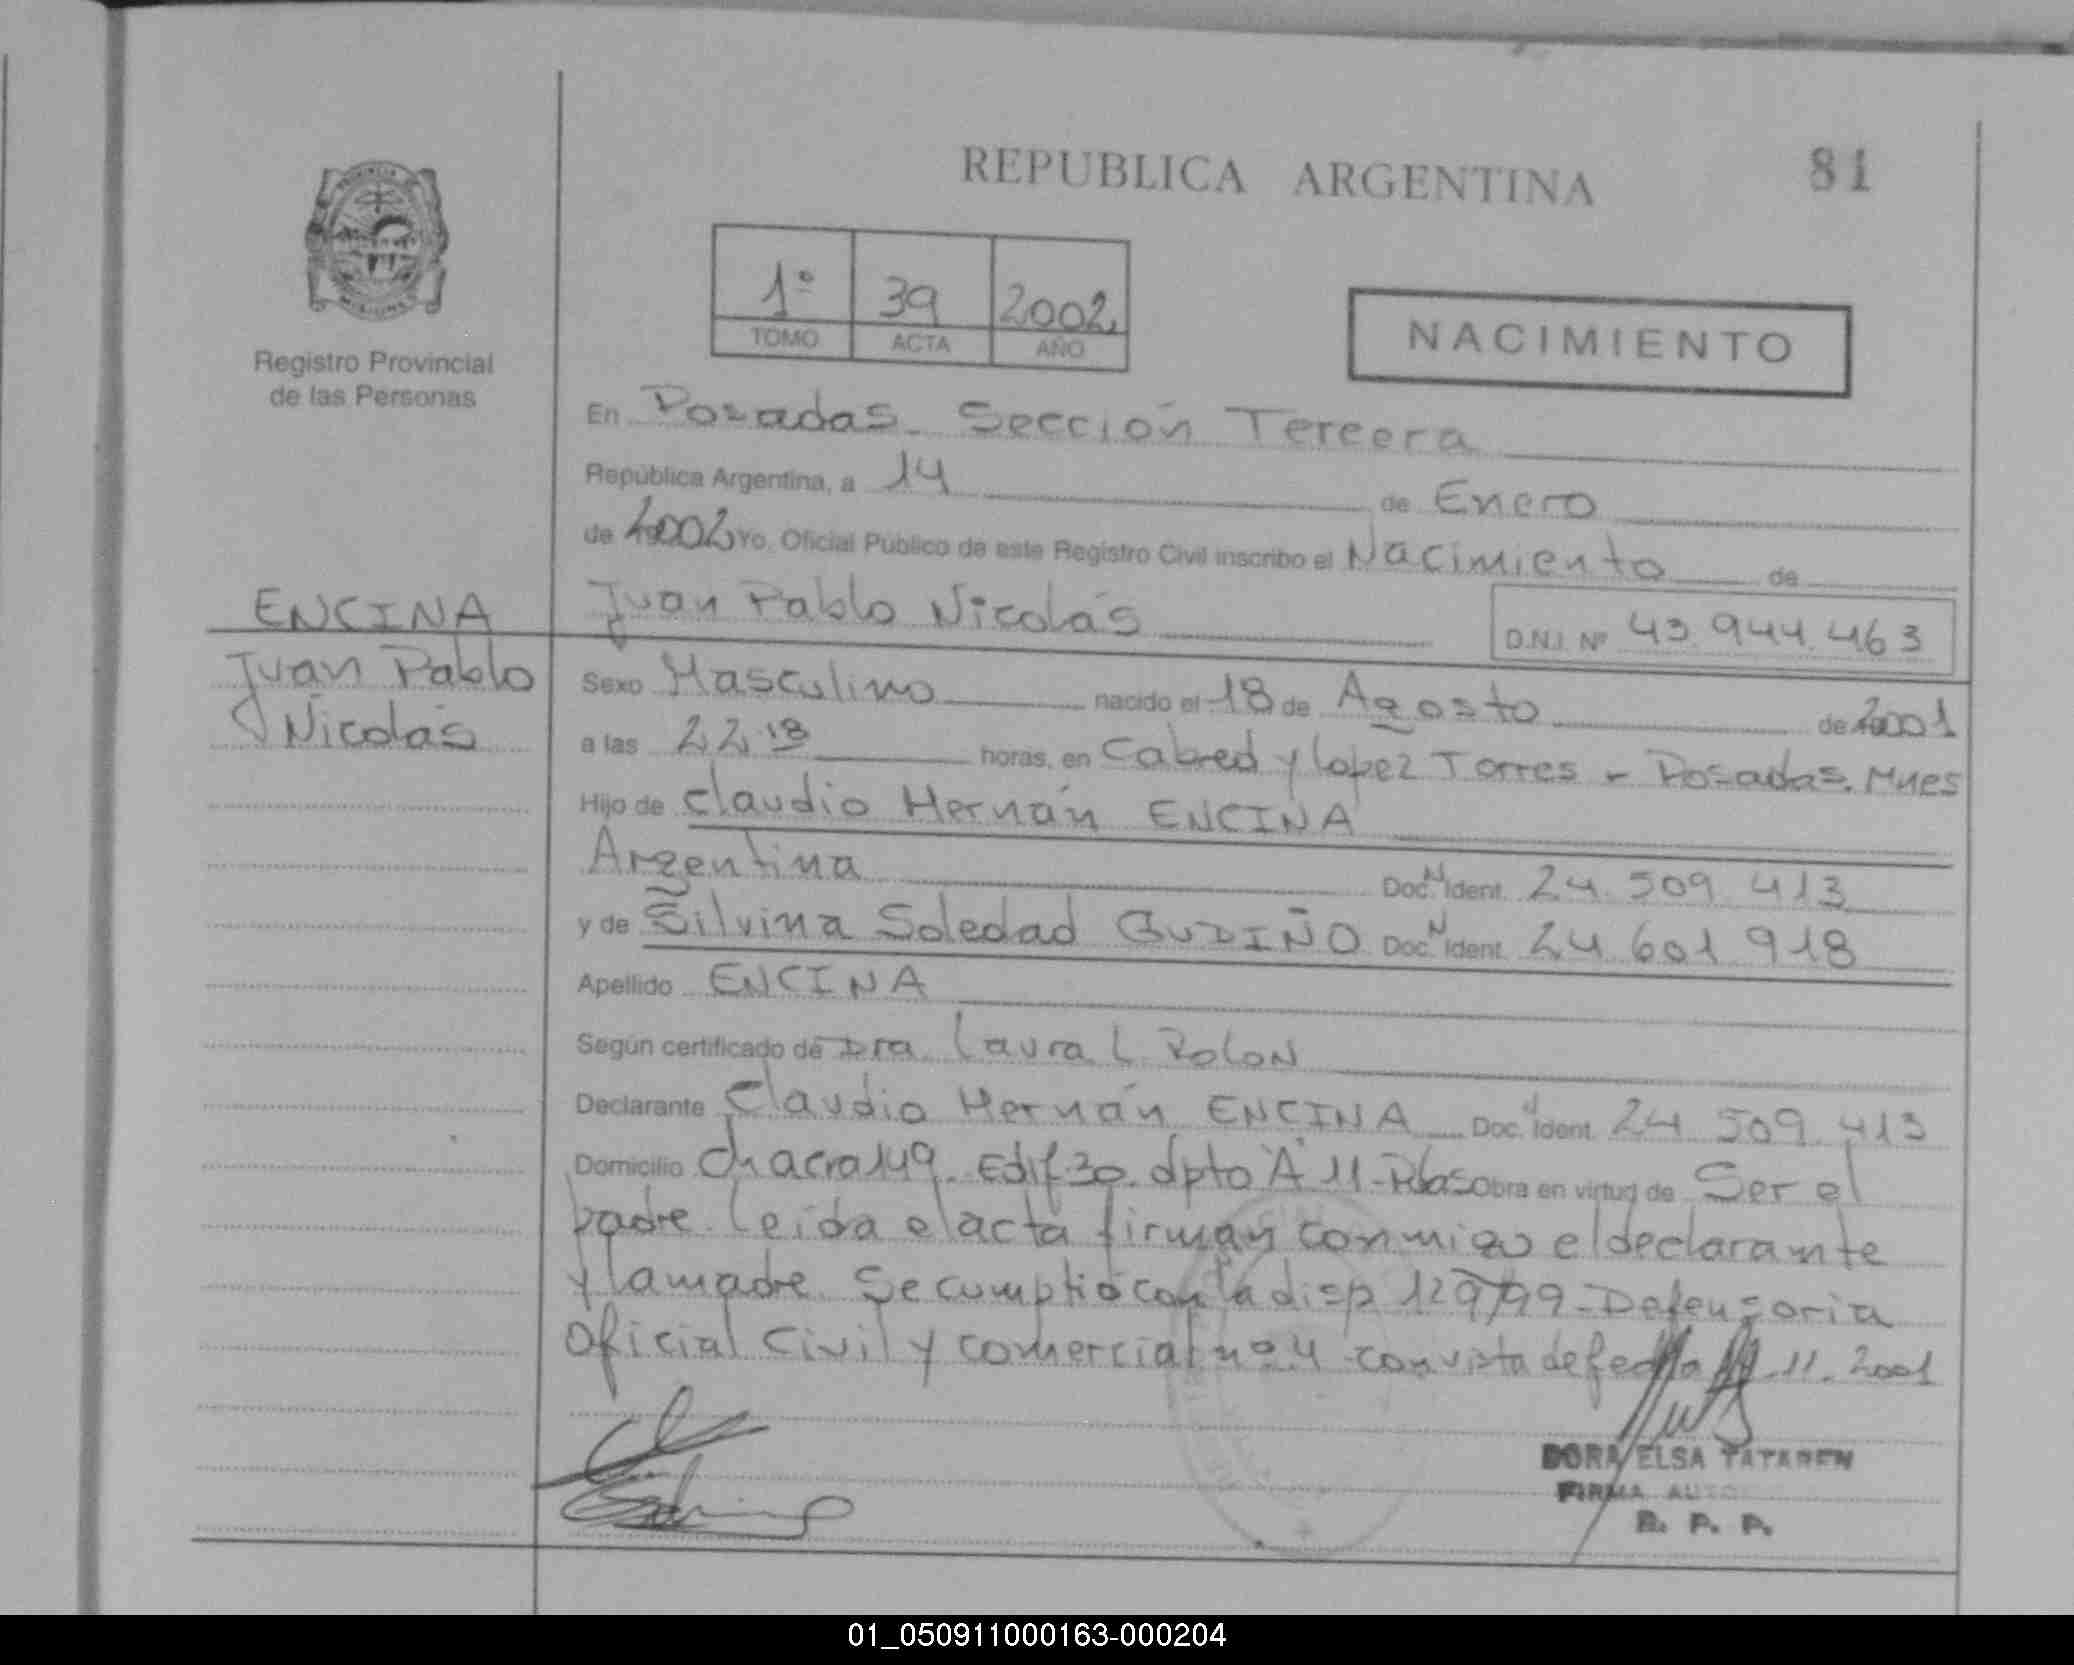 REPUBLICA ARGENTINA
81
1º 39 2002
TOMO ACTA AÑO
NACIMIENTO
Registro Provincial
de las Personas
En Posadas. Sección Tercera
República Argentina, a 14 de Enero
de 2002 Yo, Oficial Público de este Registro Civil inscribo el Nacimiento de
Juan Pablo Nicolás D.N.I. Nº 43.944.463
ENCINA
Juan Pablo
Nicolás
Sexo Masculino nacido el 18 de Agosto de 2001
a las 22.18 horas, en Cabred y López Torres - Posadas. Mnes
Hijo de Claudio Hernán ENCINA
Argentina Doc. N Ident. 24.509.413
y de Silvina Soledad GUDIÑO Doc. N Ident. 24.601.918
Apellido ENCINA
Según certificado de Dra. Laura L. Rolon
Declarante Claudio Hernán ENCINA Doc. Ident. 24.509.413
Domicilio Chacra 149. Edif 30. dpto "A" 11-Pdas Obra en virtud de Ser el
padre. Leída el acta firman conmigo el declarante
y la madre. Se cumplió con la disp 129/99-Defensoria
Oficial Civil y comercial nº 4 con vista de fecha .11.2001
DORA ELSA TATAREN
FIRMA
R. P. P.
01_050911000163-000204